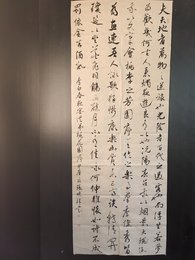 夫天地者萬物之逆旅也光陰者百代之過客也而浮生若夢
為歡幾何古人秉燭夜遊良有以也況陽春召我以煙景大塊假
我以文章會桃李之芳園序天倫之樂事群季俊秀皆
為惠連吾人詠歌獨慚康樂幽賞未已高談轉清開
瓊筵以坐花飛羽觴而醉月不有佳作何伸雅懷如詩不成
罰依金谷酒數
李白春夜宴